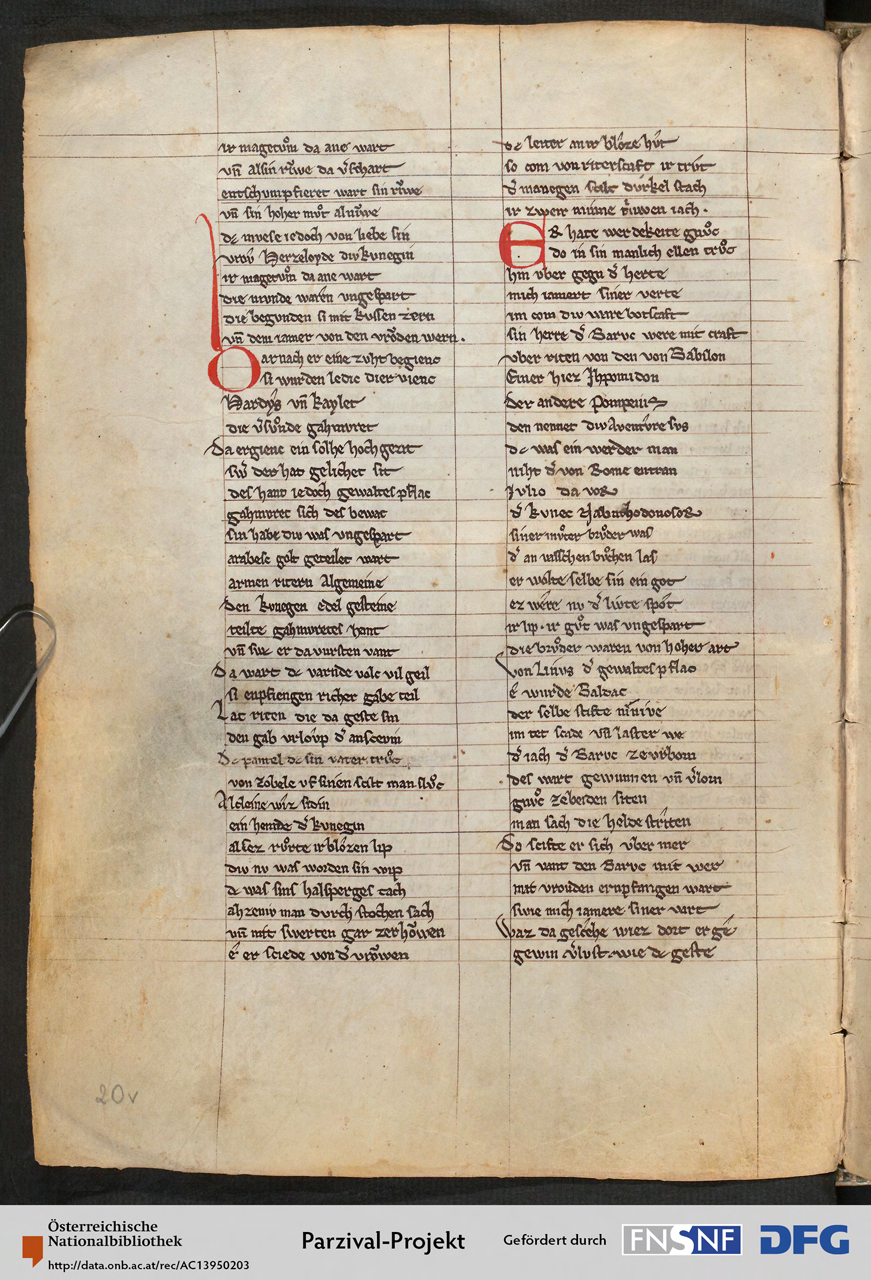 ir magetuͦm da ane wart
vn̄ alsin ruͤwe da v̾schart
entschumpfieret wart sin rúwe
vn̄ sin hoher muͦt al núwe
dc muese iedoch von liebe sin
vroͮ Herzeloyde div kvnegin
ir magetuͦm da ane wart
die munde waren vngespart
die begunden si mit kvssen zern
vn̄ dem iamer von den vroͮden wern.
Darnach er eine zvht begienc
si wurden ledic dier vienc
Hardẏs vn̄ kaylet
die v̾suͦnde gahmvret
Da ergienc ein solhe hochgezit
sw̾ der hat gelichet sit
des hant iedoch gewaltes pflac
gahmvret sich des bewac
sin habe div was vngespart
arabesc golt geteilet wart
armen ritern Algemeine
den kvnegen edel gesteine
teilte gahmvretes hant
vn̄ swc er da vursten vant
Da wart dc varnde volc vil geil
si enpfiengen richer gabe teil
Lat riten die da geste sin
den gab vrloͮp d̾ anscevin
Dc pantel dc sin vater truͦc
von zobele vf sinen scilt man sluͦc
Alcleine wiz sidin
ein hemde d̾ kvnegin
alsez ruͦrte ir blozen lip
div nv was worden sin wip
dc was sins halsperges tach
ahzeniv man durch stochen sach
vn̄ mit swerten gar zerhoͮwen
é er sciede von d̾ vroͮwen
dc leiter an ir bloze hvt
so com von riterscaft ir trvt
d̾ manegen scilt durkel stach
ir zweir minne triwen iach.
ER hate werdekeite gnuͦc
do in sin manlich ellen truͦc
hin vber gegn d̾ herte
mich iamert siner verte
im com div ware botscaft
sin herre d̾ Baruc were mit craft
vber riten von den von Babilon
Einer hiez Jhpomidon
der andere Pompeius
den nennet div Aventivre svs
dc was ein werder man
niht d̾ von Rome entran
Julio da vor
d̾ kvnec Nabuchodonosor
siner muͦter bruͦder was
d̾ an valschen buͦchen las
er wolte selbe sin ein got
ez were nv d̾ livte spot
ir lip. ir guͦt was vngespart
die bruͦder waren von hoher art
von Linus d̾ gewaltes pflac
é wurde Baldac
der selbe stifte nínive
im tet scade vn̄ laster we
d̾ iach d̾ Baruc zevrborn
des wart gewunnen vn̄ v̾lorn
gnuͦc zebeiden siten
man sach die helde striten
So scifte er sich vber mer
vn̄ vant den Baruc mit wer
mit vrouden ernpfangen wart
swie mich iamere siner vart
Waz da gescehe wiez dort erge
gewin v̾lvst. wie dc geste
20v
Österreichische
Nationalbibliothek
http://data.onb.ac.at/rec/AC13950203
Parzival-Projekt
Gefördert durch
FNSNF
DFG